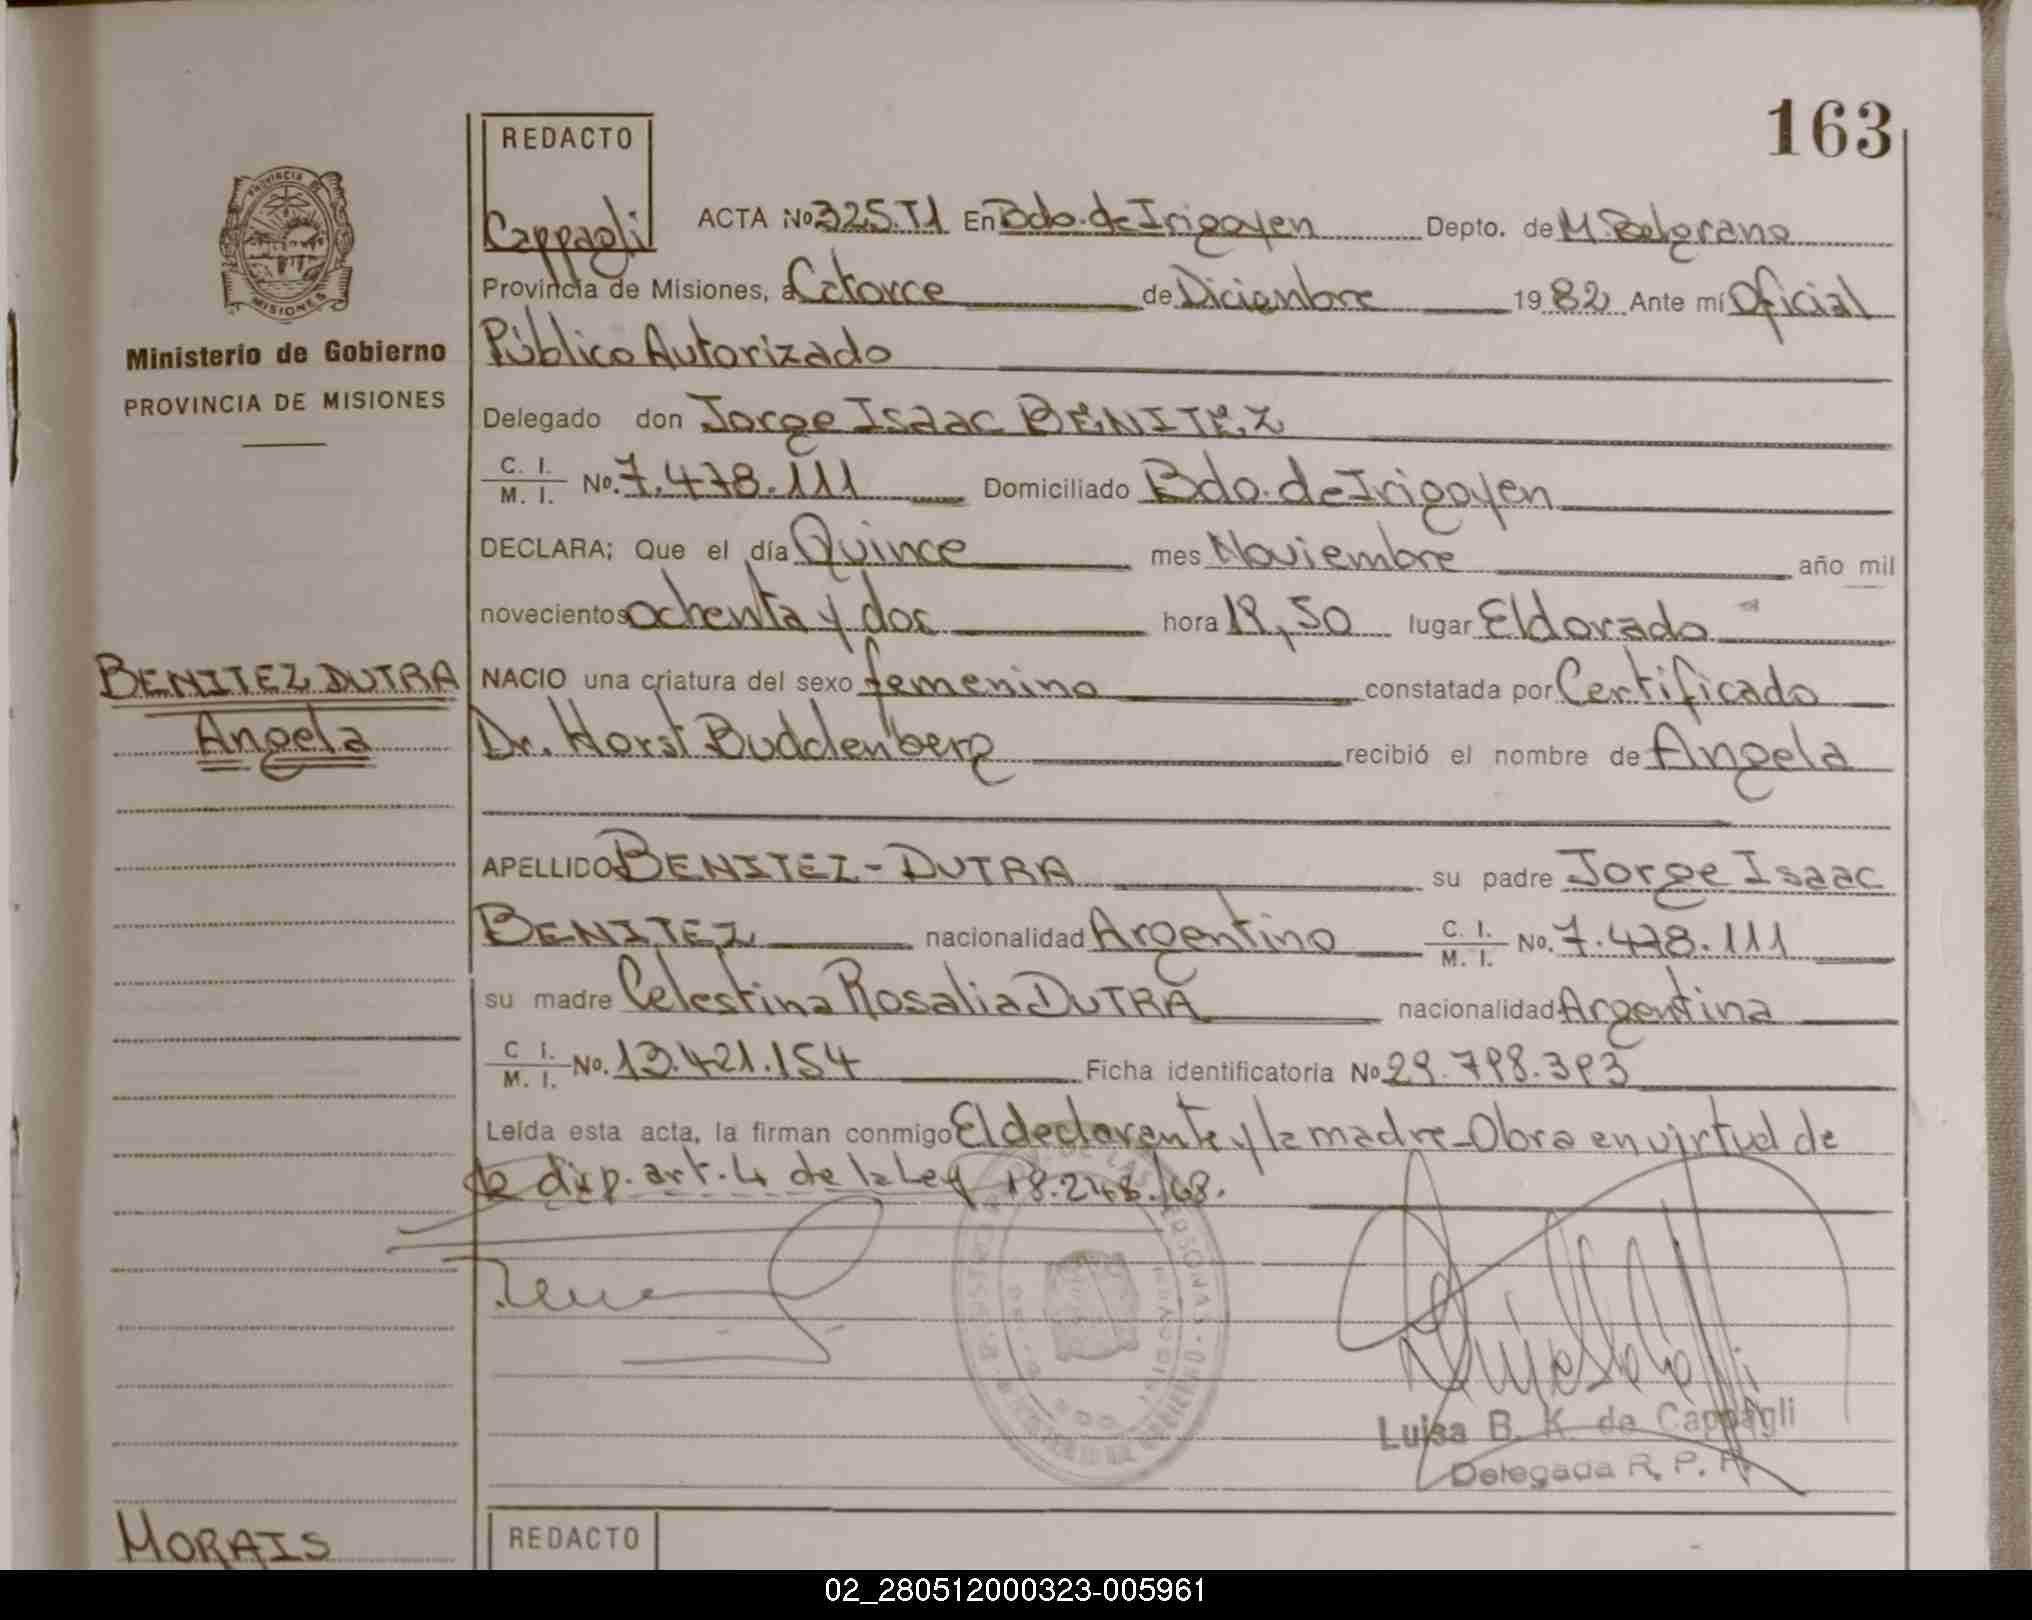 163
REDACTO
Cappagli
ACTA No 325.T1 En Bdo. de Irigoyen Depto. de M Belgrano
Provincia de Misiones, a Catorce de Diciembre 1982 Ante mí Oficial
Ministerio de Gobierno
PROVINCIA DE MISIONES
Público Autorizado
Delegado don Jorge Isaac BENITEZ
C. I. / M. I. No. 7.478.111 Domiciliado Bdo. de Irigoyen
DECLARA; Que el día Quince mes Noviembre año mil
novecientos ochenta y dos hora 19,50 lugar Eldorado
BENITEZ DUTRA
Angela
NACIO una criatura del sexo femenino constatada por Certificado
Dr. Horst Buddenberg recibió el nombre de Angela
APELLIDO BENITEZ-DUTRA su padre Jorge Isaac
BENITEZ nacionalidad Argentino C. I. / M. I. No. 7.478.111
su madre Celestina Rosalia DUTRA nacionalidad Argentina
C I. / M. I. No. 13.421.154 Ficha identificatoria No 29.798.393
Leída esta acta, la firman conmigo El declarante y la madre-Obra en virtud de
la disp. art. 4 de la Ley 18.248/68.
Luisa B. K. de Cappagli
Delegada R. P.
MORAIS
REDACTO
02_280512000323-005961